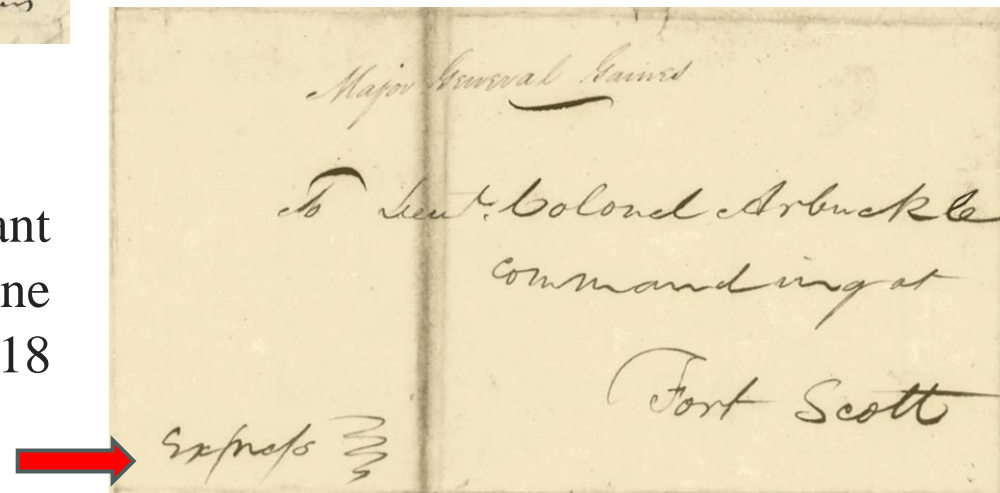 Major General Gaines
To Lieut. Colonel Arbuckle
commanding at
Fort Scott
Express
ant
ne
18